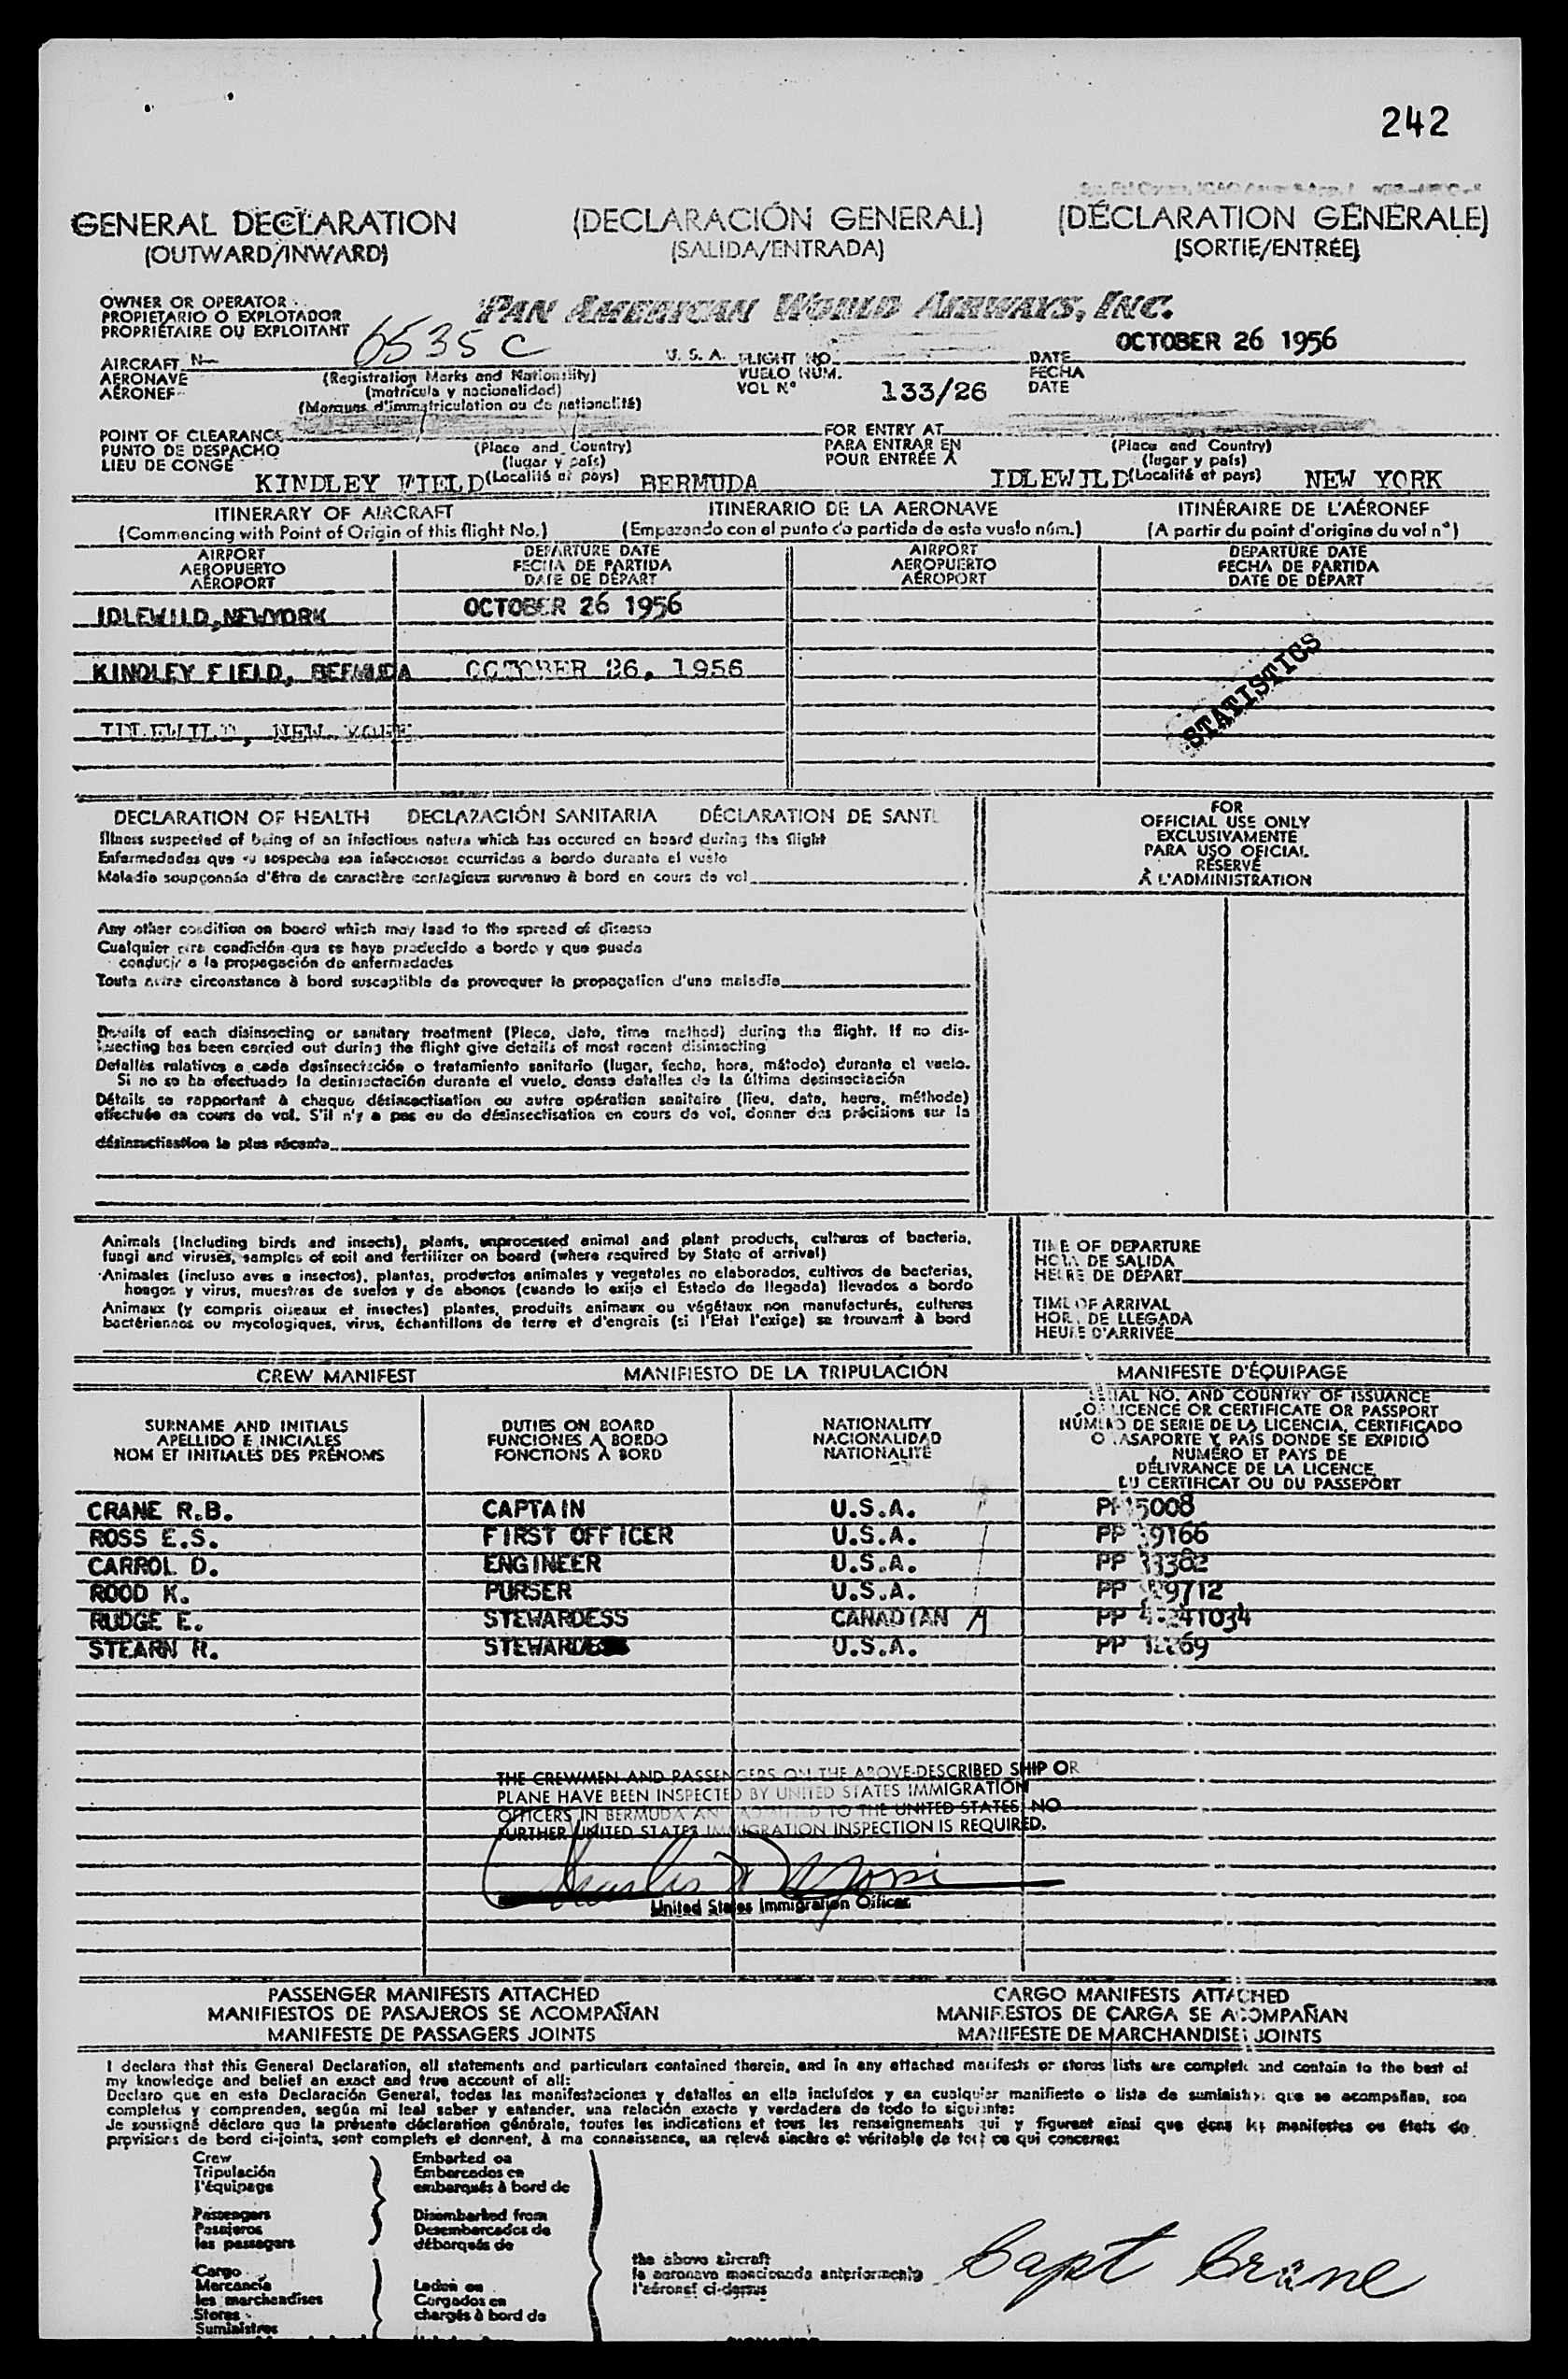 242
GENERAL DECLARATION (DECLARACIÓN GENERAL) (DÉCLARATION GÉNÉRALE)
(OUTWARD/INWARD) (SALIDA/ENTRADA) (SORTIE/ENTRÉE)
OWNER OR OPERATOR
PROPIETARIO O EXPLOTADOR
PROPRIÉTAIRE OU EXPLOITANT
PAN AMERICAN WORLD AIRWAYS, INC.
AIRCRAFT N- 6535 C U. S. A. FLIGHT NO. DATE OCTOBER 26 1956
AERONAVE (Registration Marks and Nationality) VUELO NÚM. FECHA
AÉRONEF (matrícula y nacionalidad) VOL N° 133/26 DATE
(Marques d'immatriculation ou de nationalité)
POINT OF CLEARANCE FOR ENTRY AT
PUNTO DE DESPACHO (Place and Country) PARA ENTRAR EN (Place and Country)
LIEU DE CONGÉ (lugar y país) POUR ENTRÉE À (lugar y país)
KINDLEY FIELD (Localité et pays) BERMUDA IDLEWILD (Localité et pays) NEW YORK
ITINERARY OF AIRCRAFT ITINERARIO DE LA AERONAVE ITINÉRAIRE DE L'AÉRONEF
(Commencing with Point of Origin of this flight No.) (Empezando con el punto de partida de este vuelo núm.) (A partir du point d'origine du vol n°)
AIRPORT DEPARTURE DATE AIRPORT DEPARTURE DATE
AEROPUERTO FECHA DE PARTIDA AEROPUERTO FECHA DE PARTIDA
AÉROPORT DATE DE DÉPART AÉROPORT DATE DE DÉPART
IDLEWILD, NEWYORK OCTOBER 26 1956
KINDLEY FIELD, BERMUDA OCTOBER 26, 1956
IDLEWILD, NEW YORK
STATISTICS
DECLARATION OF HEALTH DECLARACIÓN SANITARIA DÉCLARATION DE SANTÉ
Illness suspected of being of an infectious nature which has occured on board during the flight
Enfermedades que se sospecha son infecciosas ocurridas a bordo durante el vuelo
Maladie soupçonnée d'être de caractère contagieux survenue à bord en cours de vol
FOR
OFFICIAL USE ONLY
EXCLUSIVAMENTE
PARA USO OFICIAL
RÉSERVÉ
À L'ADMINISTRATION
Any other condition on board which may lead to the spread of disease
Cualquier otra condición que se haya producido a bordo y que pueda
conducir a la propagación de enfermedades
Toute autre circonstance à bord susceptible de provoquer la propagation d'une maladie
Details of each disinsecting or sanitary treatment (Place, date, time method) during the flight. If no dis-
insecting has been carried out during the flight give details of most recent disinsecting
Detalles relativos a cada desinsectación o tratamiento sanitario (lugar, fecha, hora, método) durante el vuelo.
Si no se ha efectuado la desinsectación durante el vuelo, dense detalles de la última desinsectación
Détails se rapportant à chaque désinsectisation ou autre opération sanitaire (lieu, date, heure, méthode)
effectuée en cours de vol. S'il n'y a pas eu de désinsectisation en cours de vol, donner des précisions sur la
désinsectisation la plus récente
Animals (Including birds and insects), plants, unprocessed animal and plant products, cultures of bacteria,
fungi and viruses, samples of soil and fertilizer on board (where required by State of arrival)
Animales (incluso aves e insectos), plantas, productos animales y vegetales no elaborados, cultivos de bacterias,
hongos y virus, muestras de suelos y de abonos (cuando lo exija el Estado de llegada) llevados a bordo
Animaux (y compris oiseaux et insectes) plantes, produits animaux ou végétaux non manufacturés, cultures
bactériennes ou mycologiques, virus, échantillons de terre et d'engrais (si l'Etat l'exige) se trouvant à bord
TIME OF DEPARTURE
HORA DE SALIDA
HEURE DE DÉPART
TIME OF ARRIVAL
HORA DE LLEGADA
HEURE D'ARRIVÉE
CREW MANIFEST MANIFIESTO DE LA TRIPULACIÓN MANIFESTE D'ÉQUIPAGE
SURNAME AND INITIALS
APELLIDO E INICIALES
NOM ET INITIALES DES PRÉNOMS
DUTIES ON BOARD
FUNCIONES A BORDO
FONCTIONS À BORD
NATIONALITY
NACIONALIDAD
NATIONALITÉ
SERIAL NO. AND COUNTRY OF ISSUANCE
OF LICENCE OR CERTIFICATE OR PASSPORT
NÚMERO DE SERIE DE LA LICENCIA, CERTIFICADO
O PASAPORTE Y PAÍS DONDE SE EXPIDIÓ
NUMÉRO ET PAYS DE
DÉLIVRANCE DE LA LICENCE
DU CERTIFICAT OU DU PASSEPORT
CRANE R.B. CAPTAIN U.S.A.
ROSS E.S. FIRST OFFICER U.S.A. PP
CARROL D. ENGINEER U.S.A. PP
ROOD K. PURSER U.S.A. PP
RUDGE E. STEWARDESS CANADIAN A PP
STEARN H. STEWARDESS U.S.A. PP
THE CREWMEN AND PASSENGERS ON THE ABOVE-DESCRIBED SHIP OR
PLANE HAVE BEEN INSPECTED BY UNITED STATES IMMIGRATION
OFFICERS IN BERMUDA AND ADMITTED TO THE UNITED STATES. NO
FURTHER UNITED STATES IMMIGRATION INSPECTION IS REQUIRED.
Charles
United States Immigration Officer
PASSENGER MANIFESTS ATTACHED CARGO MANIFESTS ATTACHED
MANIFIESTOS DE PASAJEROS SE ACOMPAÑAN MANIFIESTOS DE CARGA SE ACOMPAÑAN
MANIFESTE DE PASSAGERS JOINTS MANIFESTE DE MARCHANDISES JOINTS
I declare that this General Declaration, all statements and particulars contained therein, and in any attached manifests or stores lists are complete and contain to the best of
my knowledge and belief an exact and true account of all:
Declaro que en esta Declaración General, todas las manifestaciones y detalles en ella incluídos y en cualquier manifiesto o lista de suministros que se acompañan, son
completos y comprenden, según mi leal saber y entender, una relación exacta y verdadera de todo lo siguiente:
Je soussigné déclare que la présente déclaration générale, toutes les indications et tous les renseignements qui y figurent ainsi que dans les manifestes ou états de
provisions de bord ci-joints, sont complets et donnent, à ma connaissance, un relevé sincère et véritable de tout ce qui concerne:
Crew Embarked on
Tripulación Embarcados en
l'équipage embarqués à bord de
Passengers Disembarked from
Pasajeros Desembarcados de
les passagers débarqués de
Cargo
Mercancía Laden on
les marchandises Cargados en
Stores chargés à bord de
Suministros
the above aircraft
la aeronave mencionada anteriormente
l'aéronef ci-dessus
Capt Crane